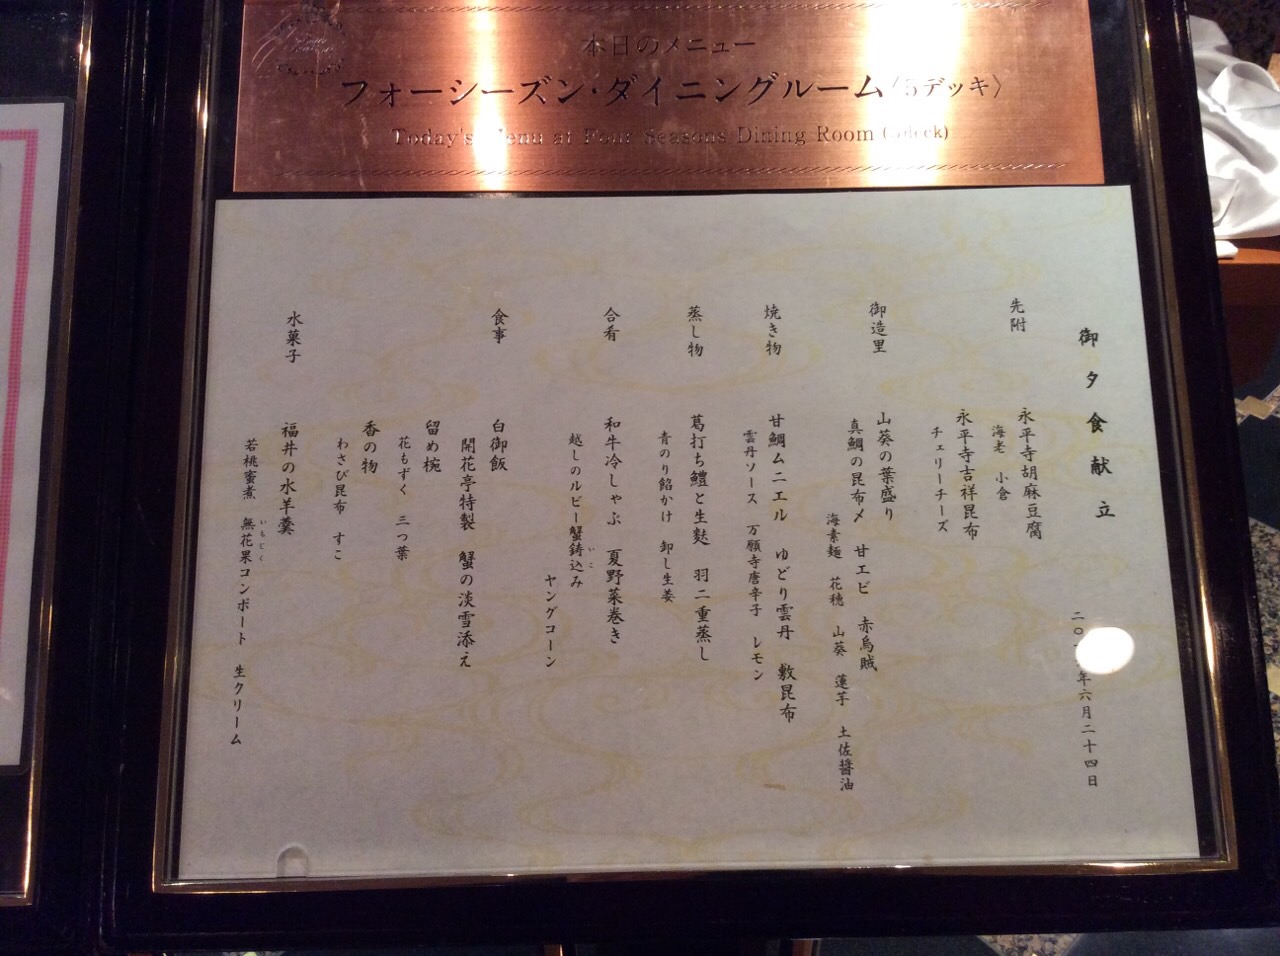 本日のメニュー
フォーシーズン・ダイニングルーム〈5デッキ〉
Today's Menu at Four Seasons Dining Room
御夕食献立
年六月二十四日
先附
永平寺胡麻豆腐
海老 小倉
永平寺吉祥昆布
チェリーチーズ
御造里
山葵の葉盛り
真鯛の昆布〆 甘エビ 赤烏賊
海素麺 花穂 山葵 蓮芋 土佐醤油
焼き物
甘鯛ムニエル ゆどり雲丹 敷昆布
雲丹ソース 万願寺唐辛子 レモン
蒸し物
葛打ち鱧と生麩 羽二重蒸し
青のり餡かけ 卸し生姜
合肴
和牛冷しゃぶ 夏野菜巻き
越しのルビー蟹鋳込み
いこ
ヤングコーン
食事
白御飯
開花亭特製 蟹の淡雪添え
留め椀
花もずく 三つ葉
香の物
わさび昆布 すこ
水菓子
福井の水羊羹
若桃蜜煮 無花果コンポート 生クリーム
いちじく